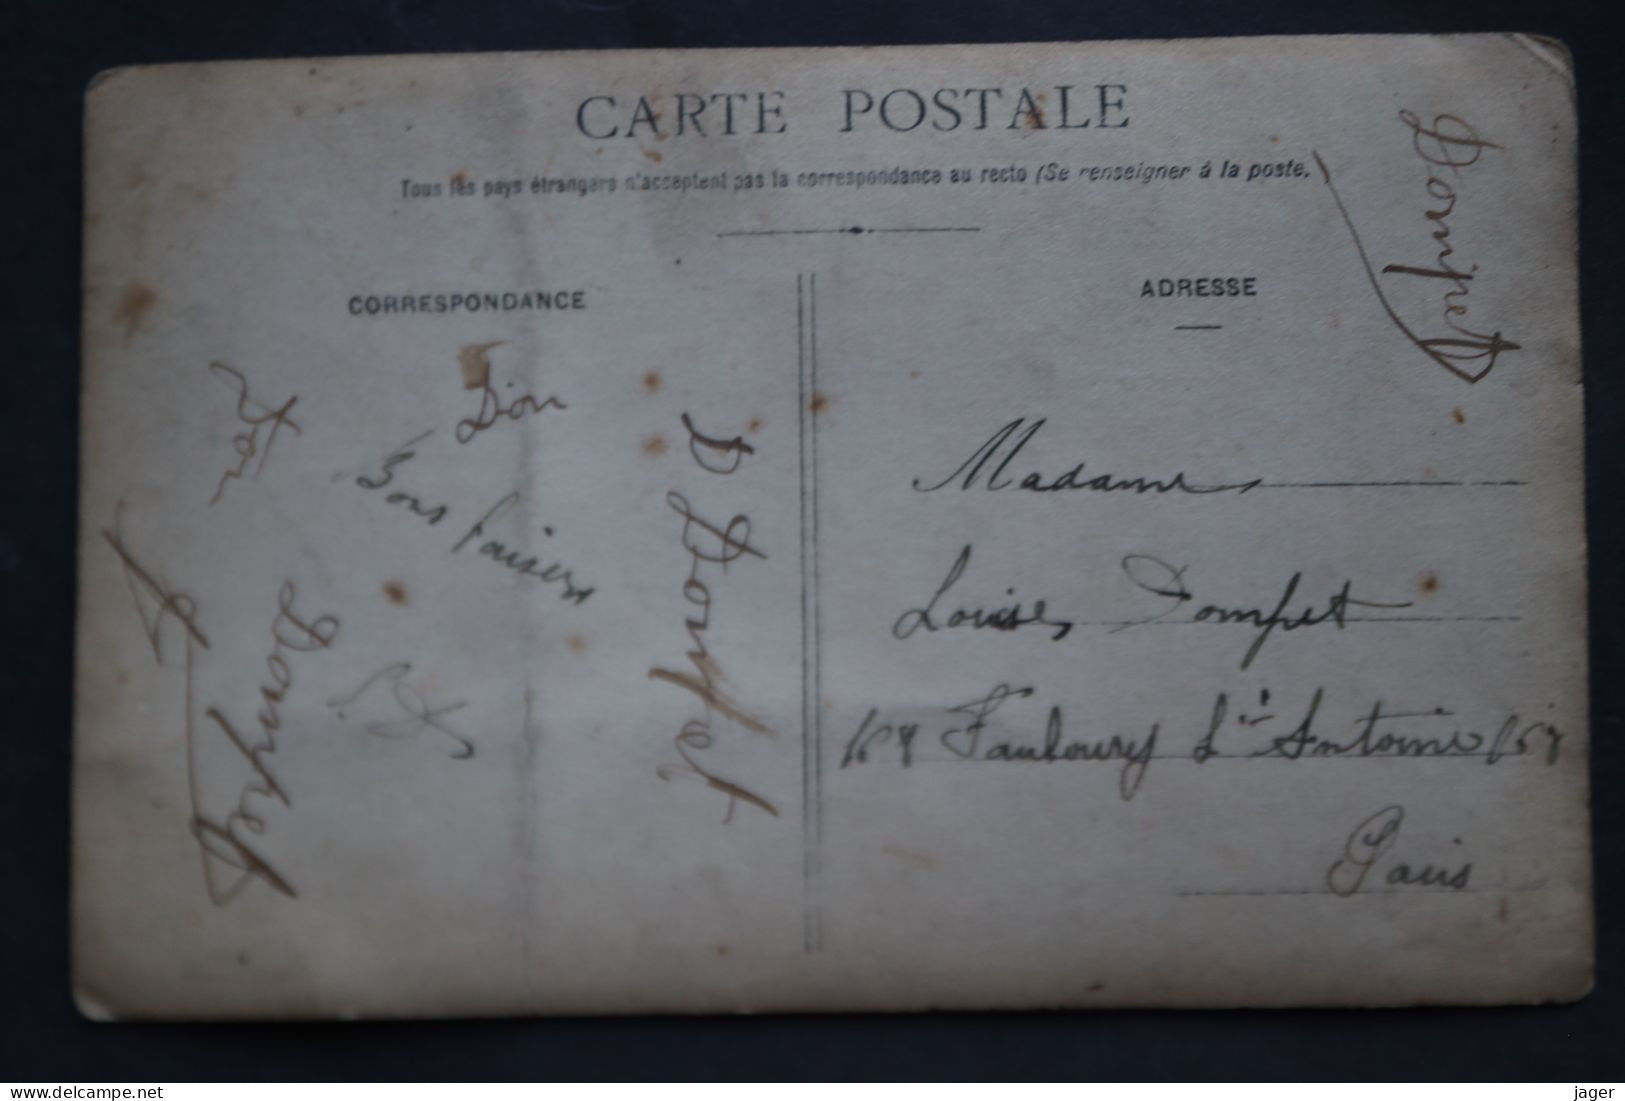 CARTE POSTALE
Tous les pays étrangers n'acceptent pas la correspondance au recto (Se renseigner à la poste.)
CORRESPONDANCE
ADRESSE
Dompet
Bons baisers
D Dompet
Dompet
Madame
Louise Dompet
Faubourg St Antoine
Paris
www.delcampe.net
jager